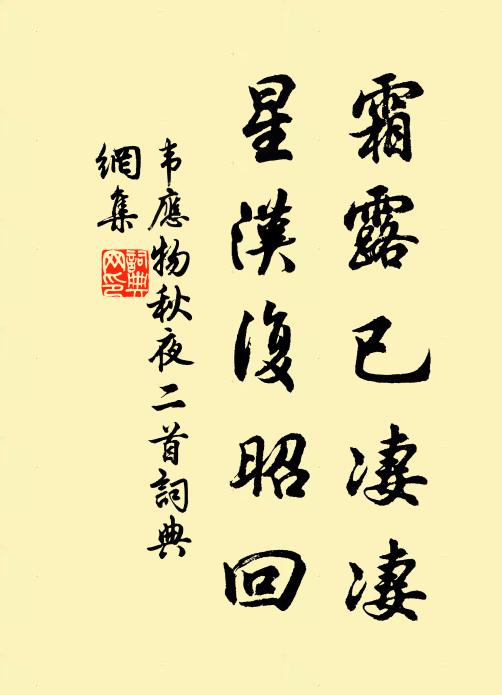 霜露已凄凄
星漢復昭回
韦應物秋夜二首詞典
網集
詞典
网印